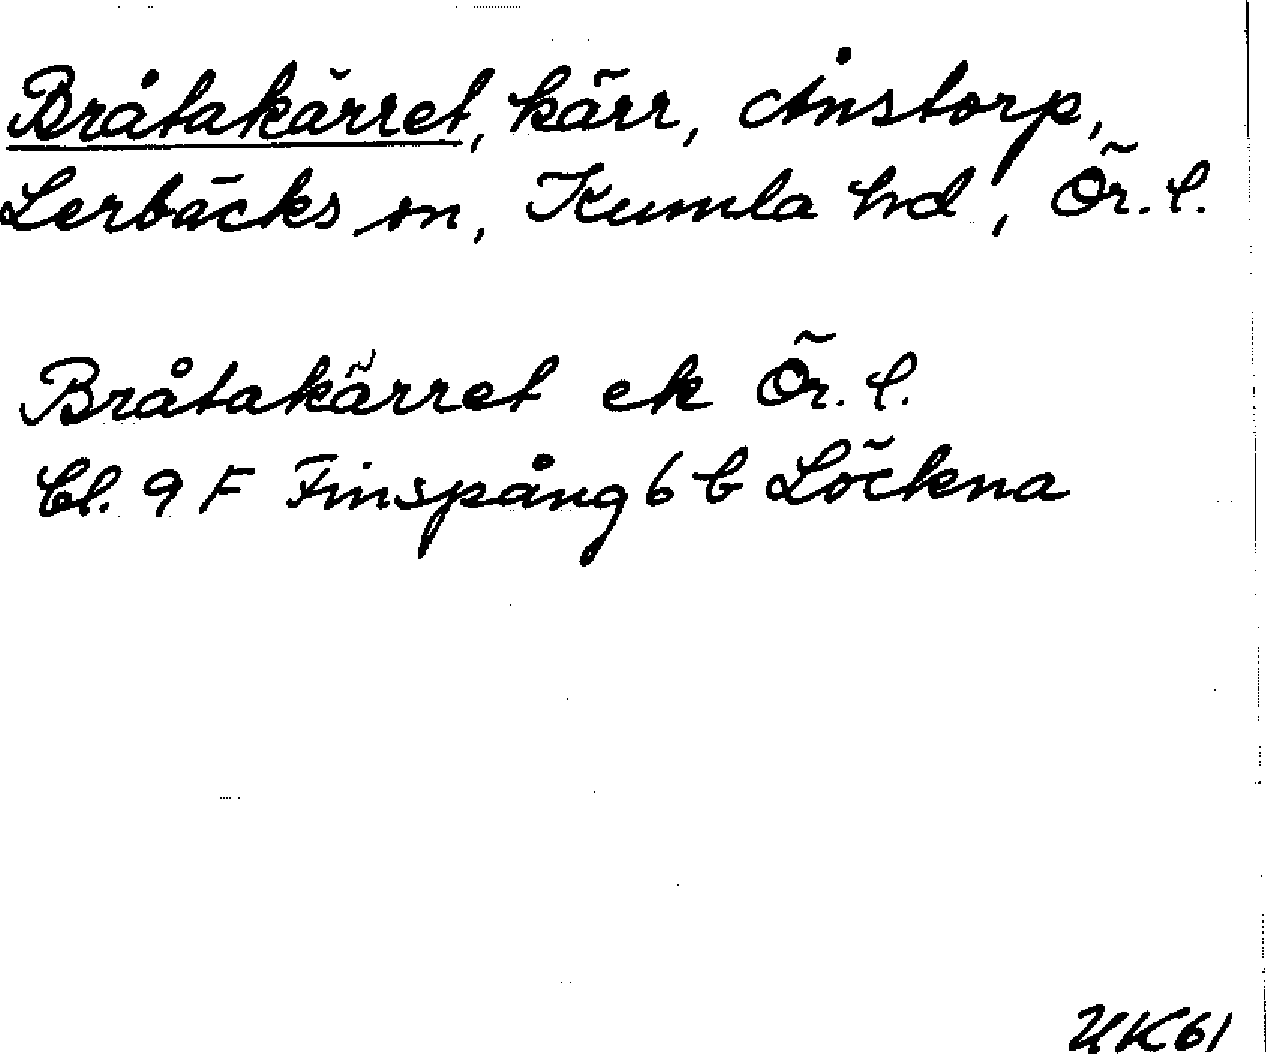 Bråtakärret, kärr, Ånstorp,
Lerbäcks sn, Kumla hd, Ör. l.
Bråtakärret ek Ör. l.
Bl. 9 F Finspång 6 b Löckna
UK61